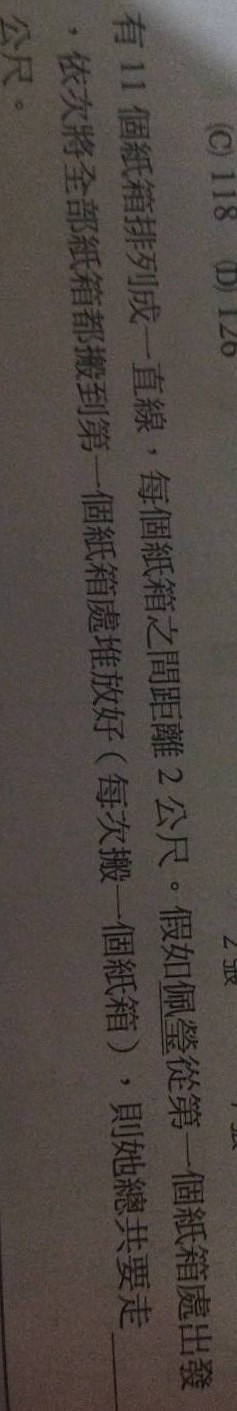 (C) 118 (D) 126
有 11 個紙箱排列成一直線，每個紙箱之間距離 2 公尺。假如佩瑩從第一個紙箱處出發
，依次將全部紙箱都搬到第一個紙箱處堆放好（每次搬一個紙箱），則她總共要走
公尺。